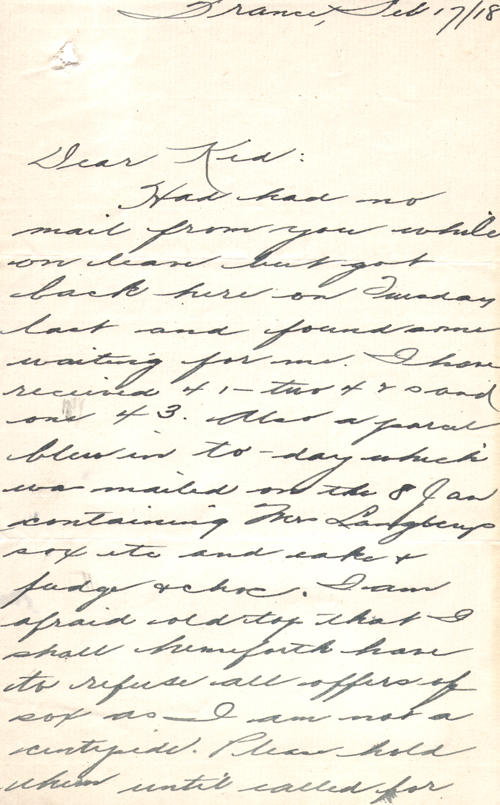 France, Feb 17/18
Dear Kid:
Had had no
mail from you while
on leave but got
back here on Tuesday
last and found some
waiting for me. I have
received 41 - two 42s and
one 43. Also a parcel
blew in to-day which
was mailed on the 8 Jan
containing Mrs
sox etc and cake &
fudge & choc. I am
afraid old top that I
shall henceforth have
to refuse all offers of
sox as I am not a
centipide. Please hold
them until called for